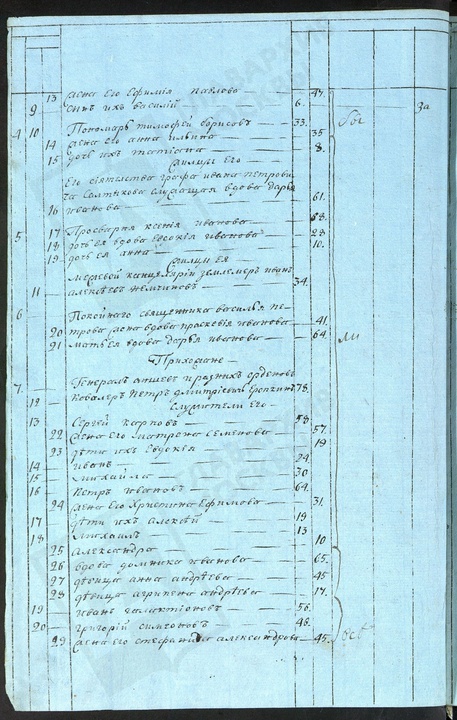 13 жена Его Ефимія павлова 47.
9 сынъ ихъ василій 6.
4 10 Пономарь тимофей борисовъ 33.
14 жена его анна ильина 35
15 дочь ихъ татіана 8.
жилцы Его
Его сіятелства графа ивана петрови
ча салтыкова служащая вдова дарья
16 иванова 61.
5 17 Просвирня ксенія иванова 68.
18 дочь ея вдова Евдокія иванова 28
19 дочь ея анна 10.
жилцы ея
межевой канцеляріи землемеръ иванъ
11 алексеевъ немчиновъ 34.
6 Покойнаго священника василья пе
20 трова жена вдова прасковія иванова 41.
21 мать ея вдова дарья иванова 64.
Прихожане
7 Генералъ аншефъ и разныхъ орденовъ
12 Ковалеръ Петръ дмитріевичь Еропкинъ 78.
Служители Его
13 Сергей карповъ 58
22 жена Его матрона семенова 57.
23 дѣти ихъ Евдокея 19
14 иванъ 24
15 михайла 30
16 Петръ ивановъ 64.
24 жена Его Христина Ефимова 31.
17 дѣти ихъ алексѣй 19
18 михаилъ 13
25 александра 10.
26 вдова домника иванова 65.
27 дѣвица анна андрѣева 45
28 дѣвица агрипена андрѣева 17.
19 иванъ галактіоновъ 56.
20 григорій симеоновъ 46.
29 жена его стефанида александрова 45.
За